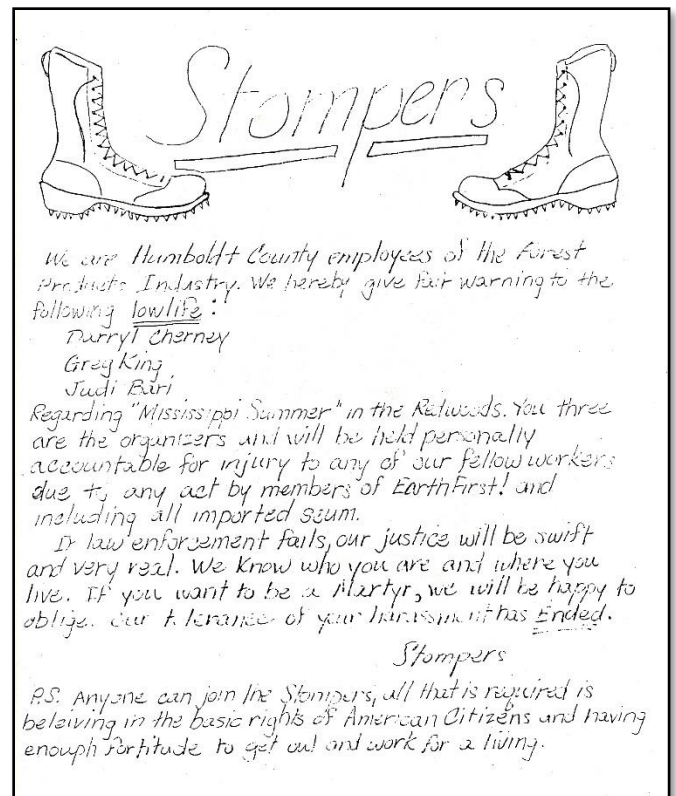 Stompers
We are Humboldt County employees of the Forest
Products Industry. We hereby give fair warning to the
following lowlife:
Darryl Cherney
Greg King
Judi Bari
Regarding "Mississippi Summer" in the Redwoods. You three
are the organizers and will be held personally
accountable for injury to any of our fellow workers
due to any act by members of EarthFirst! and
including all imported scum.
If law enforcement fails, our justice will be swift
and very real. We know who you are and where you
live. If you want to be a Martyr, we will be happy to
oblige. Our tolerance of your harassment has Ended.
Stompers
P.S. Anyone can join the Stompers, all that is required is
beleiving in the basic rights of American Citizens and having
enouph fortitude to get out and work for a living.